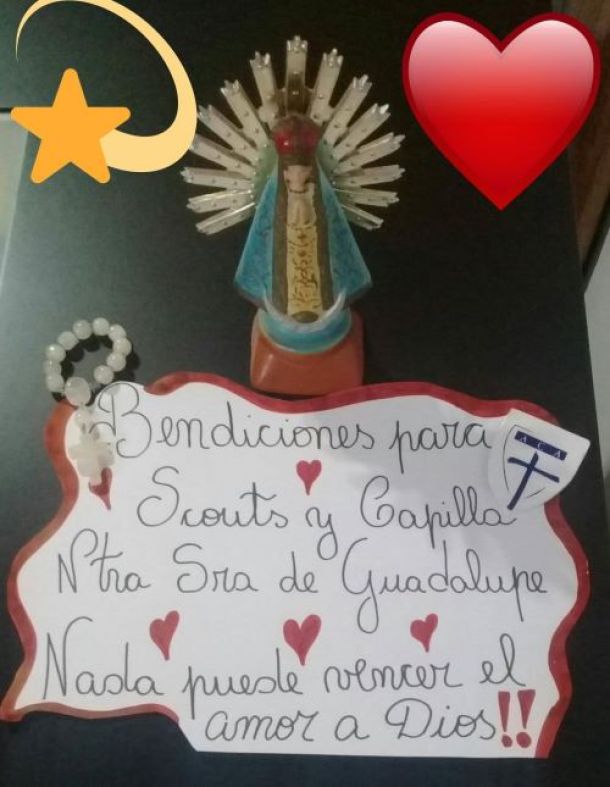 Bendiciones para
A C A
Scouts y Capilla
Ntra Sra de Guadalupe
Nada puede vencer el
amor a Dios!!